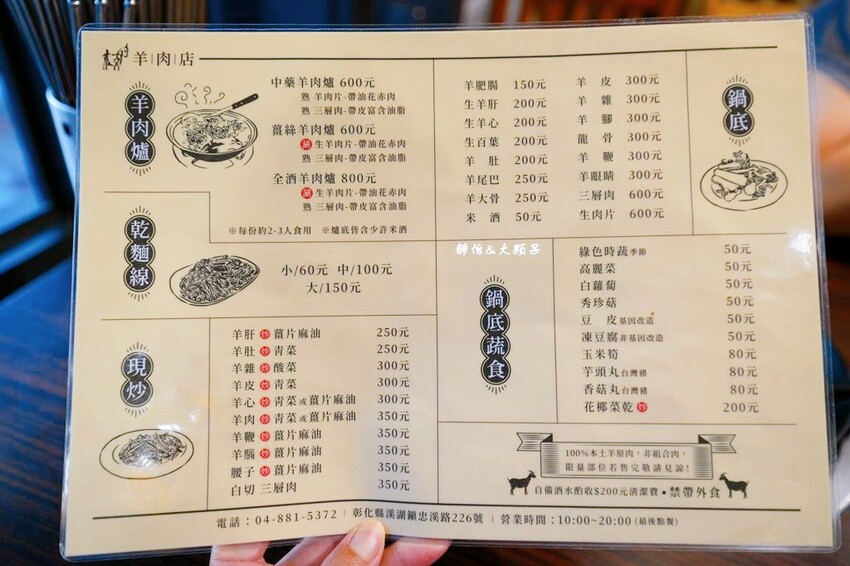 羊肉店
羊肉爐
中藥羊肉爐 600元
熟 羊肉片-帶油花赤肉
熟 三層肉-帶皮富含油脂
薑絲羊肉爐 600元
涮 生羊肉片-帶油花赤肉
熟 三層肉-帶皮富含油脂
全酒羊肉爐 800元
涮 生羊肉片-帶油花赤肉
熟 三層肉-帶皮富含油脂
※每份約2-3人食用 ※爐底皆含少許米酒
乾麵線
小/60元 中/100元
大/150元
現炒
羊肝炒薑片麻油 250元
羊肚炒青菜 250元
羊雜炒酸菜 300元
羊皮炒青菜 300元
羊心炒青菜或薑片麻油 300元
羊肉炒青菜或薑片麻油 350元
羊鞭炒薑片麻油 350元
羊腦炒薑片麻油 350元
腰子炒薑片麻油 350元
白切 三層肉 350元
鍋底
羊肥腸 150元
生羊肝 200元
生羊心 200元
生百葉 200元
羊肚 200元
羊尾巴 250元
羊大骨 250元
米酒 50元
羊皮 300元
羊雜 300元
羊腳 300元
龍骨 300元
羊鞭 300元
羊眼睛 300元
三層肉 600元
生肉片 600元
靜怡&大顆呆
鍋底蔬食
綠色時蔬季節 50元
高麗菜 50元
白蘿蔔 50元
秀珍菇 50元
豆皮基因改造 50元
凍豆腐非基因改造 50元
玉米筍 80元
芋頭丸台灣豬 80元
香菇丸台灣豬 80元
花椰菜乾炒 200元
100%本土羊原肉,非組合肉,
限量部位若售完敬請見諒!
自備酒水酌收$200元清潔費•禁帶外食
電話:04-881-5372 | 彰化縣溪湖鎮忠溪路226號 | 營業時間:10:00~20:00 (最後點餐)